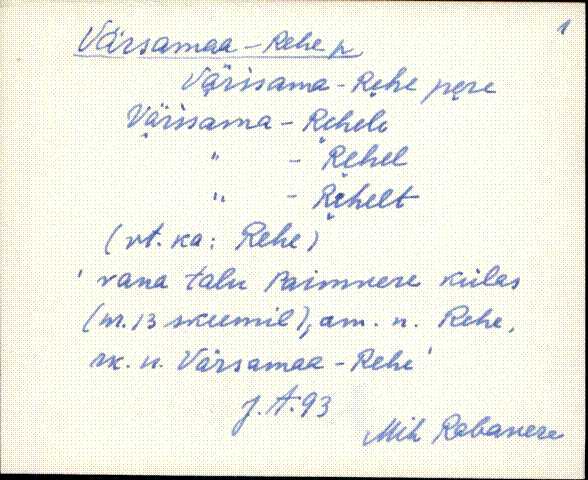 1
Värsamaa - Rehe p
Värisama - Rehe pere
Värisama - Rehele
" - Rehel
" - Rehelt
(vt. ka: Rehe)
' vana talu Paimvere külas
(nr. 13 skeemil), am. n. Rehe,
rk. n. Värsamaa - Rehe '
J. A. 93
Mih Rabavere